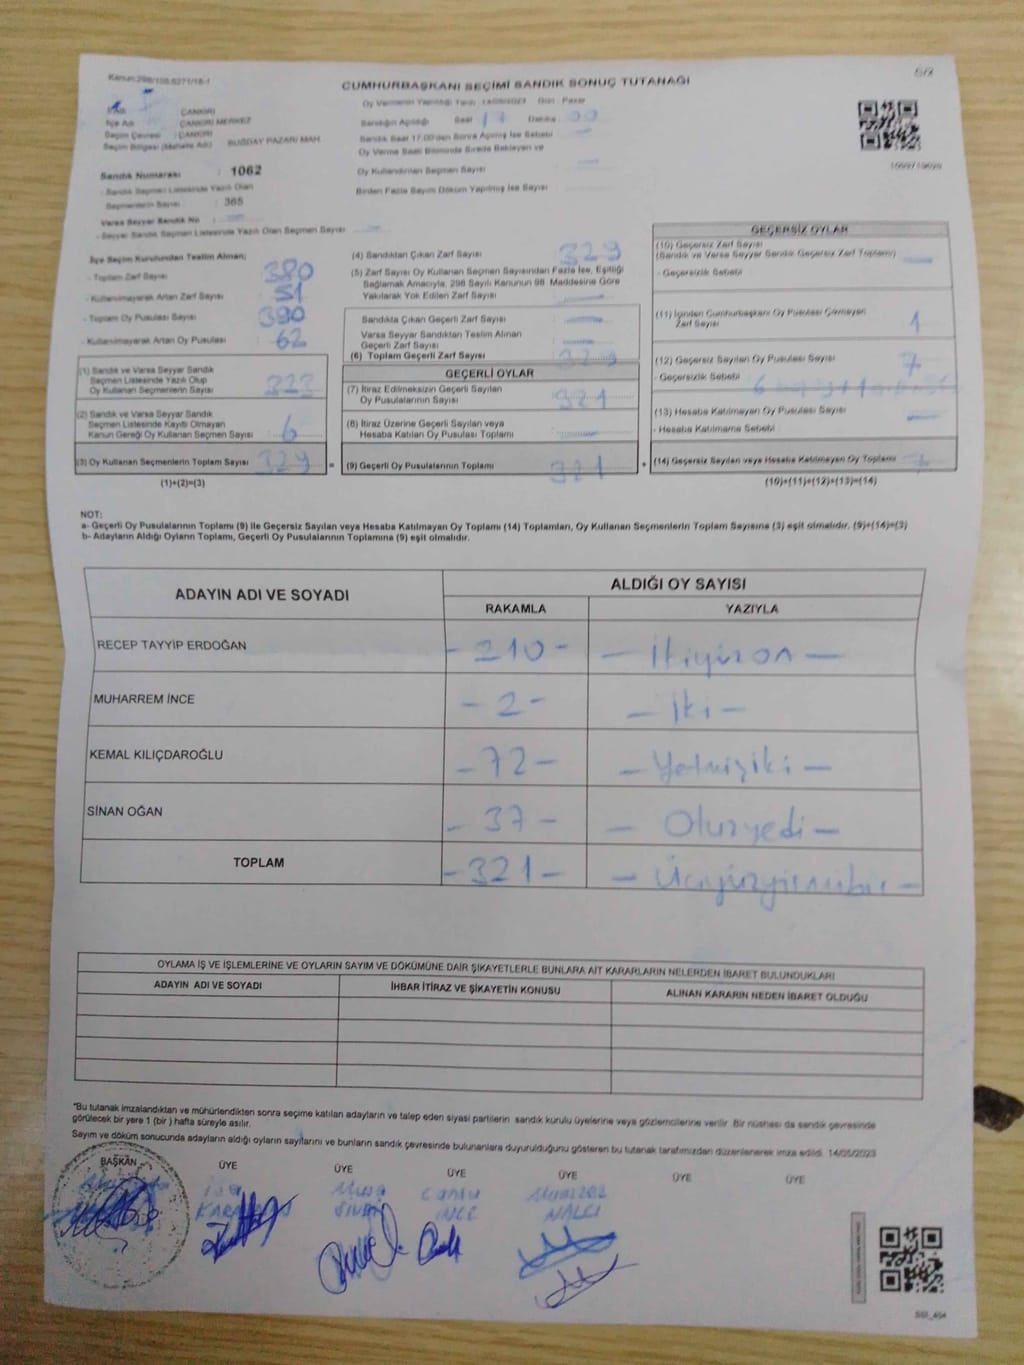 CUMHURBAŞKANI SEÇİMİ SANDIK SONUÇ TUTANAĞI
Oy Vermenin Yapıldığı Tarih : 14/05/2023 Gün : Pazar
İl Adı : ÇANKIRI
İlçe Adı : ÇANKIRI MERKEZ
Seçim Çevresi : ÇANKIRI
Seçim Bölgesi (Mahalle Adı) : BUĞDAY PAZARI MAH.
Sandığın Açıldığı Saat 17 Dakika 00
Sandık Saat 17.00'den Sonra Açılmış İse Sebebi
Oy Verme Saati Bitiminde Sırada Bekleyen ve
Oy Kullandırılan Seçmen Sayısı
Birden Fazla Sayım Döküm Yapılmış İse Sayısı
Sandık Numarası : 1062
- Sandık Seçmen Listesinde Yazılı Olan
Seçmenlerin Sayısı : 365
Varsa Seyyar Sandık No
- Seyyar Sandık Seçmen Listesinde Yazılı Olan Seçmen Sayısı
İlçe Seçim Kurulundan Teslim Alınan;
- Toplam Zarf Sayısı 380
- Kullanılmayarak Artan Zarf Sayısı 51
- Toplam Oy Pusulası Sayısı 390
- Kullanılmayarak Artan Oy Pusulası 62
(1) Sandık ve Varsa Seyyar Sandık
Seçmen Listesinde Yazılı Olup
Oy Kullanan Seçmenlerin Sayısı 323
(2) Sandık ve Varsa Seyyar Sandık
Seçmen Listesinde Kayıtlı Olmayan
Kanun Gereği Oy Kullanan Seçmen Sayısı 6
(3) Oy Kullanan Seçmenlerin Toplam Sayısı 329 =
(1)+(2)=(3)
(4) Sandıktan Çıkan Zarf Sayısı 329
(5) Zarf Sayısı Oy Kullanan Seçmen Sayısından Fazla İse, Eşitliği
Sağlamak Amacıyla, 298 Sayılı Kanunun 98. Maddesine Göre
Yakılarak Yok Edilen Zarf Sayısı
Sandıkta Çıkan Geçerli Zarf Sayısı
Varsa Seyyar Sandıktan Teslim Alınan
Geçerli Zarf Sayısı
(6) Toplam Geçerli Zarf Sayısı 329
GEÇERLİ OYLAR
(7) İtiraz Edilmeksizin Geçerli Sayılan
Oy Pusulalarının Sayısı 321
(8) İtiraz Üzerine Geçerli Sayılan veya
Hesaba Katılan Oy Pusulası Toplamı
(9) Geçerli Oy Pusulalarının Toplamı 321 +
GEÇERSİZ OYLAR
(10) Geçersiz Zarf Sayısı
(Sandık ve Varsa Seyyar Sandık Geçersiz Zarf Toplamı)
- Geçersizlik Sebebi
(11) İçinden Cumhurbaşkanı Oy Pusulası Çıkmayan
Zarf Sayısı 1
(12) Geçersiz Sayılan Oy Pusulası Sayısı 7
- Geçersizlik Sebebi
(13) Hesaba Katılmayan Oy Pusulası Sayısı
- Hesaba Katılmama Sebebi
(14) Geçersiz Sayılan veya Hesaba Katılmayan Oy Toplamı
(10)+(11)+(12)+(13)=(14)
NOT:
a- Geçerli Oy Pusulalarının Toplamı (9) ile Geçersiz Sayılan veya Hesaba Katılmayan Oy Toplamı (14) Toplamları, Oy Kullanan Seçmenlerin Toplam Sayısına (3) eşit olmalıdır. (9)+(14)=(3)
b- Adayların Aldığı Oyların Toplamı, Geçerli Oy Pusulalarının Toplamına (9) eşit olmalıdır.
ADAYIN ADI VE SOYADI
ALDIĞI OY SAYISI
RAKAMLA YAZIYLA
RECEP TAYYİP ERDOĞAN - 210 - - İkiyüzon -
MUHARREM İNCE - 2 - - İki -
KEMAL KILIÇDAROĞLU - 72 - - Yetmişiki -
SİNAN OĞAN - 37 - - Otuzyedi -
TOPLAM - 321 - - Üçyüzyirmibir -
OYLAMA İŞ VE İŞLEMLERİNE VE OYLARIN SAYIM VE DÖKÜMÜNE DAİR ŞİKAYETLERLE BUNLARA AİT KARARLARIN NELERDEN İBARET BULUNDUKLARI
ADAYIN ADI VE SOYADI İHBAR İTİRAZ VE ŞİKAYETİN KONUSU ALINAN KARARIN NEDEN İBARET OLDUĞU
"Bu tutanak imzalandıktan ve mühürlendikten sonra seçime katılan adayların ve talep eden siyasi partilerin sandık kurulu üyelerine veya gözlemcilerine verilir. Bir nüshası da sandık çevresinde
görülecek bir yere 1 (bir ) hafta süreyle asılır.
Sayım ve döküm sonucunda adayların aldığı oyların sayılarını ve bunların sandık çevresinde bulunanlara duyurulduğunu gösteren bu tutanak tarafımızdan düzenlenerek imza edildi. 14/05/2023
BAŞKAN ÜYE ÜYE ÜYE ÜYE ÜYE ÜYE
İsa Musa Cansu
İNCE NALCI